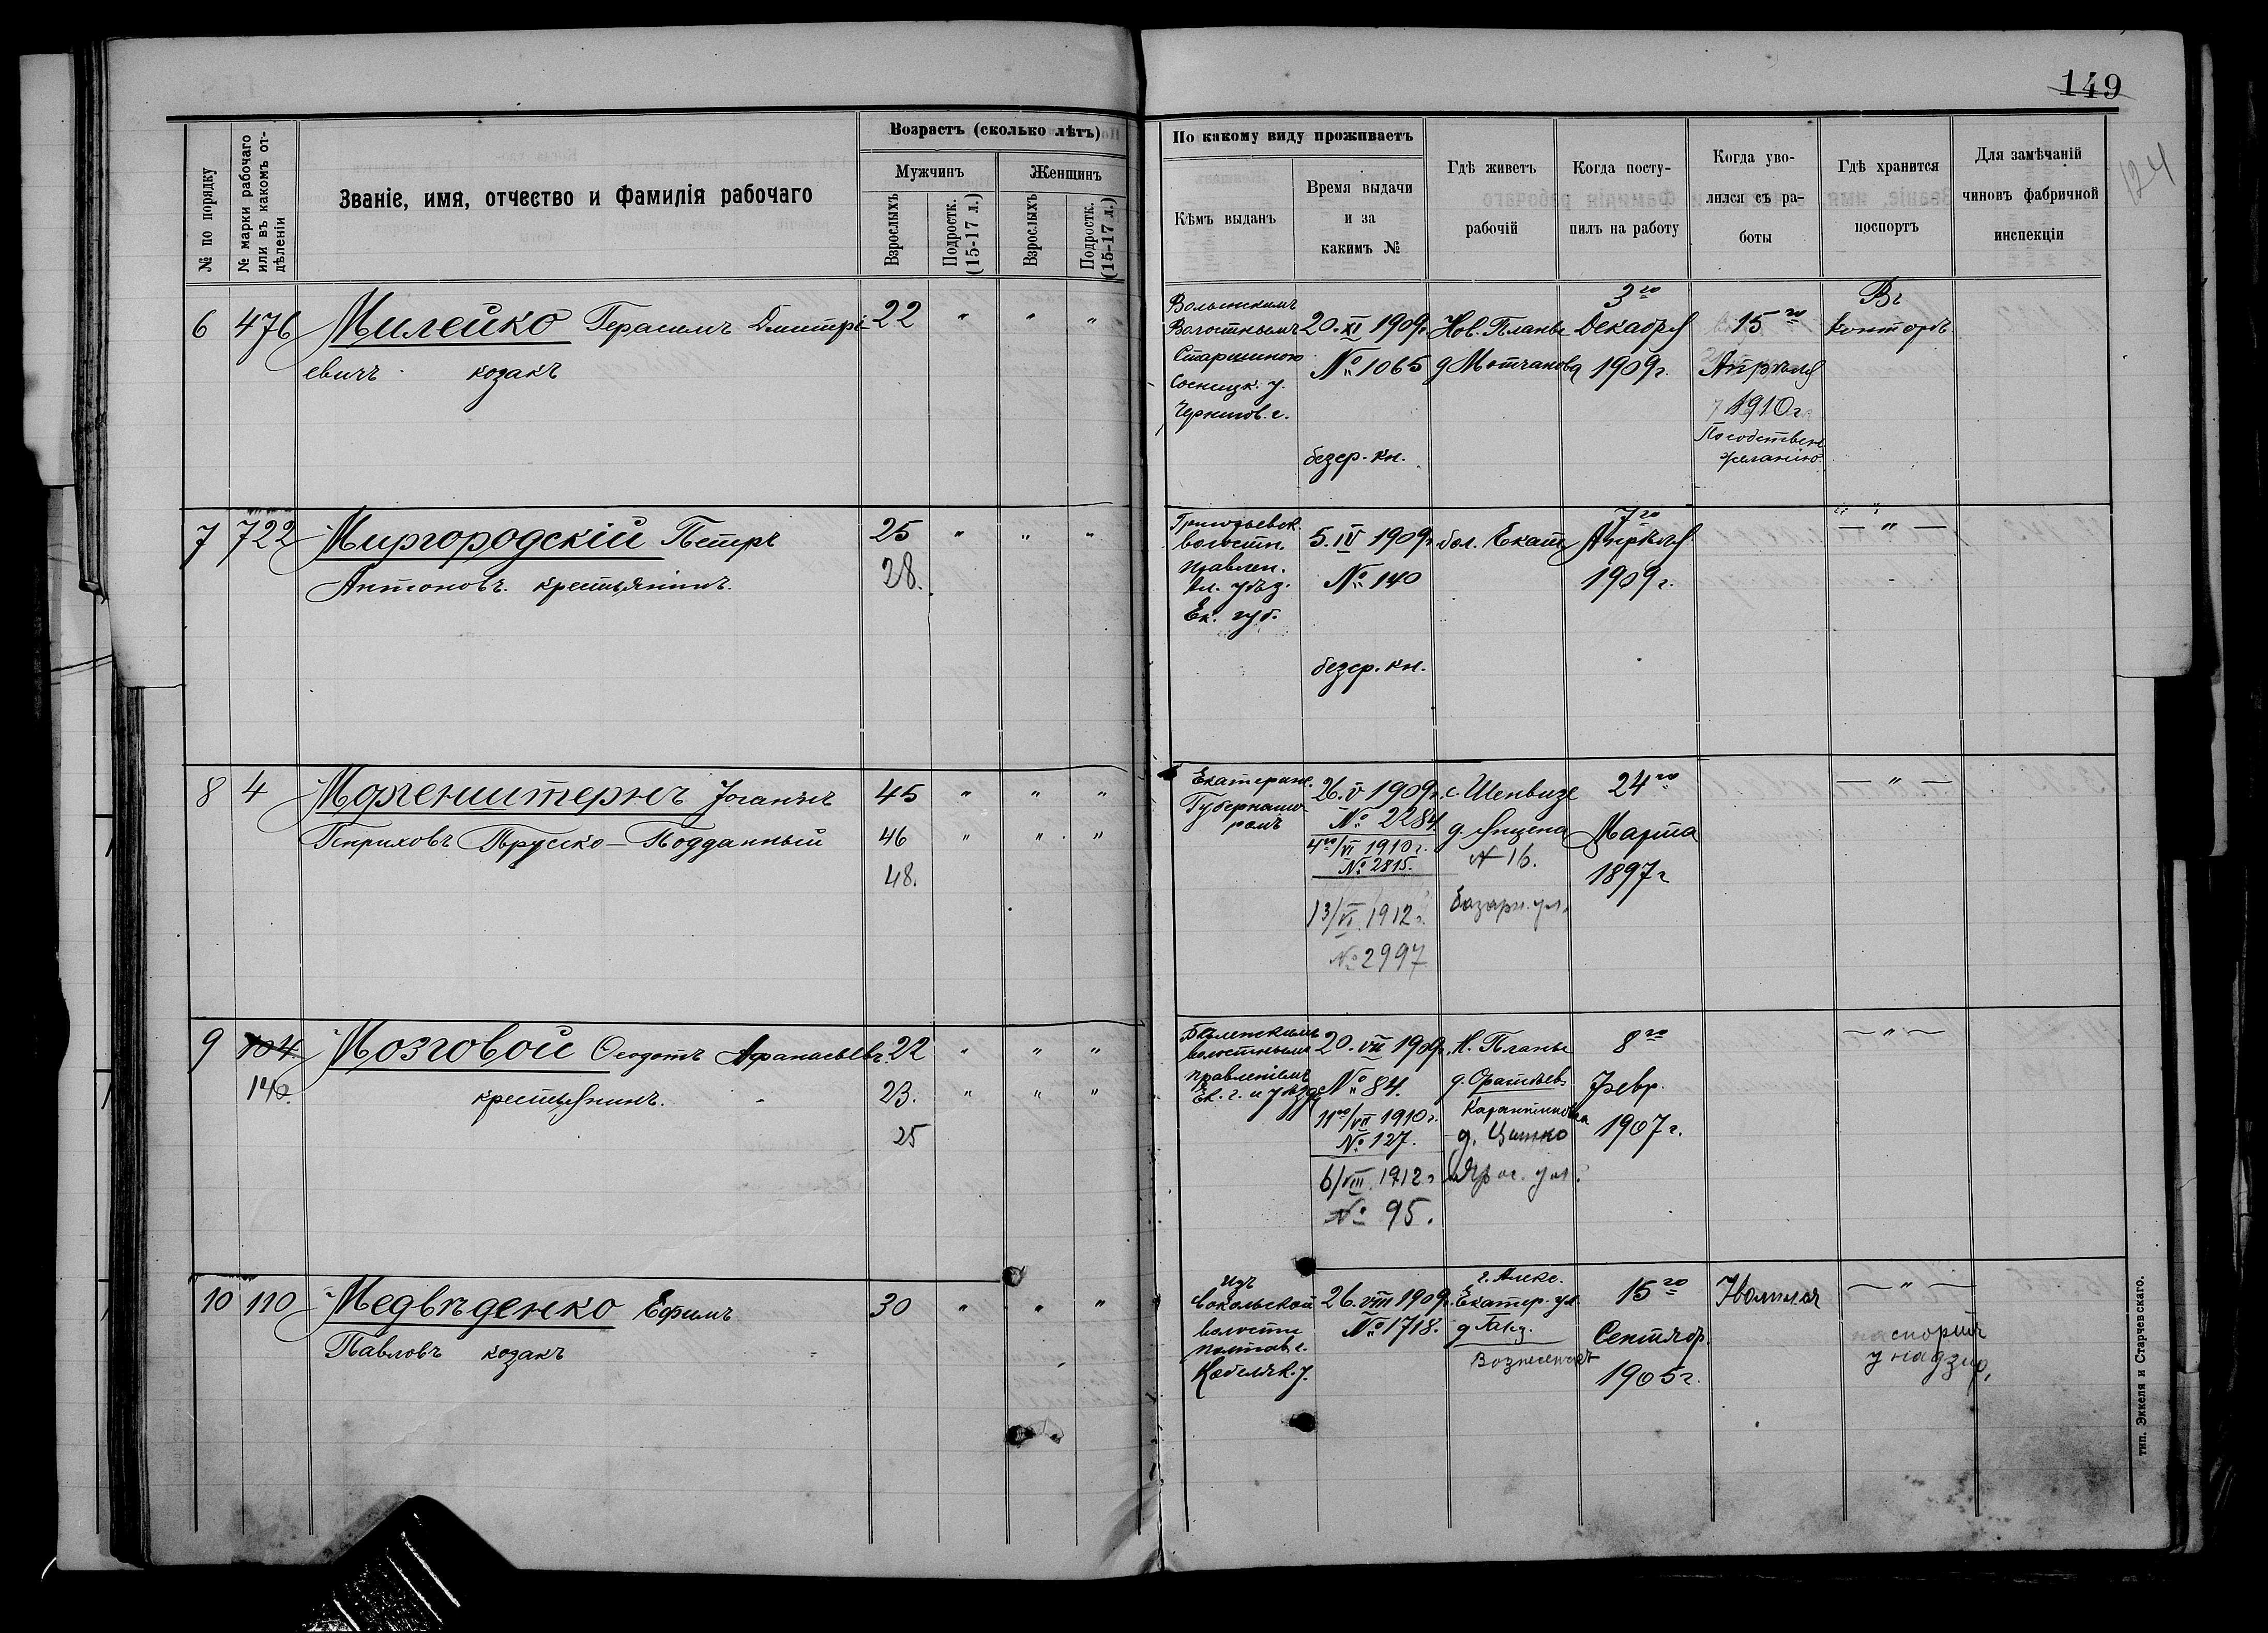 149
124
№ по порядку
№ марки рабочаго
или въ какомъ от-
дѣленіи
Званіе, имя, отчество и фамилія рабочаго
Возрастъ (сколько лѣтъ)
Мужчинъ
Женщинъ
Взрослыхъ
Подростк.
(15-17 л.)
Взрослыхъ
Подростк.
(15-17 л.)
По какому виду проживаетъ
Кѣмъ выданъ
Время выдачи
и за
какимъ №
Гдѣ живетъ
рабочій
Когда посту-
пилъ на работу
Когда уво-
лился съ ра-
боты
Гдѣ хранится
паспортъ
Для замѣчаній
чиновъ фабричной
инспекціи
6 476 Милейко Герасимъ Дмитрі-
евичъ козакъ
22 " " "
Волынскимъ
Волостнымъ
Старшиною
Сосницк. у.
Чернигов. г.
20. XI 1909г.
№ 1065
безср. кн.
Нов. Планы
д Мотчанова
3го
Декабря
1909г.
15го
Апрѣля
1910г
По собствен
желанію
Въ
конторѣ
7 722 Миргородскій Петръ
Антоновъ. крестьянинъ.
25 " " "
28.
волостн.
правлен.
Ал. уѣзд.
Ек. губ.
5. IV 1909г
№ 140
безср. кн.
бол. Екат
7го
Апрѣля
1909г.
— " —
8 4 Моргенштернъ Іоганъ
Генриховъ Прусско-Подданный
45 " " "
46 " " "
48.
Екатерин.
Губернато-
ромъ
26. V 1909г.
№ 2284
4го/VI 1910г.
№ 2815.
13/VI. 1912г.
№ 2997
с. Шенвизе
№ 16.
базарн. ул.
24го
Марта
1897г
— " —
9 104 Мозговой Ѳеодотъ Афанасьевъ
140.
крестьянинъ.
22 " " "
23. " " "
25
волостнымъ
правленіемъ
Ек. г. и уѣзда
20. VII 1909г.
№ 84.
11го/VII 1910г.
№ 127.
6/VIII. 1912г
№ 95.
Н. Планы
8го
Февр.
1907г.
— " —
10 110 Медвѣденко Ефимъ
Павловъ козакъ
30 " " "
Изъ
Сокольской
волости
Полтав г.
Кобеляк. у.
26. VIII 1909г.
№ 1718.
г. Алекс.
Екатер. ул
Вознесенск
15го
Сентябр.
1905г.
Уволился
— " —
паспортъ
у надзир.
тип. Эккеля и Старчевскаго.